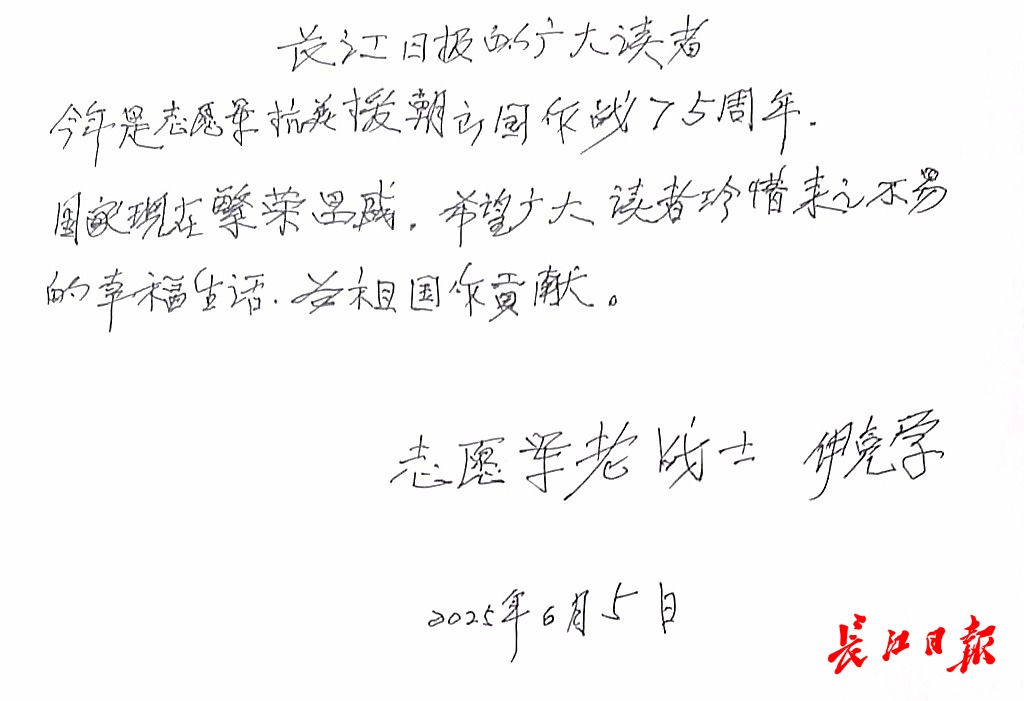 长江日报的广大读者
今年是志愿军抗美援朝出国作战75周年.
国家现在繁荣昌盛.希望广大读者珍惜来之不易
的幸福生活.为祖国作贡献。
志愿军老战士 伊亮学
2025年6月5日
长江日报